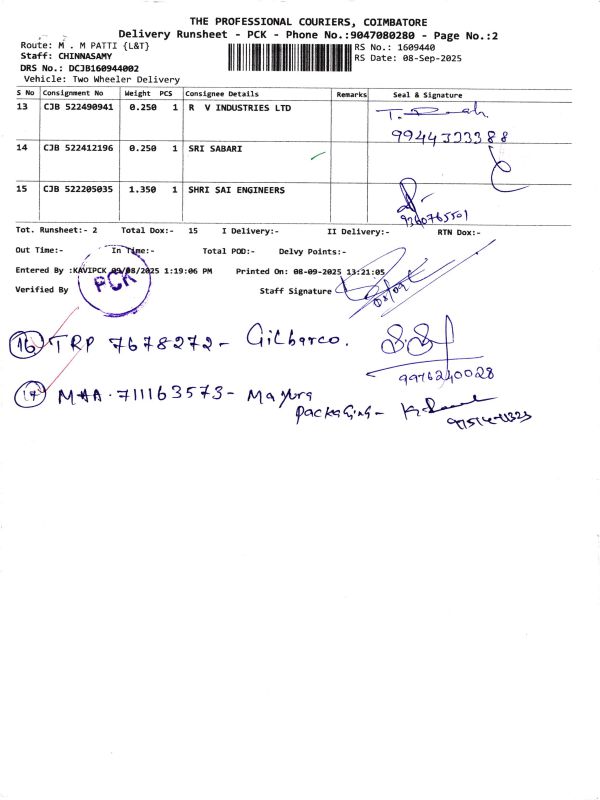 THE PROFESSIONAL COURIERS, COIMBATORE
Delivery Runsheet - PCK - Phone No.:9047080280 - Page No.:2
Route: M . M PATTI {L&T}
RS No.: 1609440
Staff: CHINNASAMY
RS Date: 08-Sep-2025
DRS No.: DCJB160944002
Vehicle: Two Wheeler Delivery
S No Consignment No Weight PCS Consignee Details Remarks Seal & Signature
13 CJB 522490941 0.250 1 R V INDUSTRIES LTD
9944333388
14 CJB 522412196 0.250 1 SRI SABARI
15 CJB 522205035 1.350 1 SHRI SAI ENGINEERS
9360765501
Tot. Runsheet:- 2 Total Dox:- 15 I Delivery:- II Delivery:- RTN Dox:-
Out Time:- In Time:- Total POD:- Delvy Points:-
Entered By :KAVIPCK 09/08/2025 1:19:06 PM Printed On: 08-09-2025 13:21:05
PCK
Verified By Staff Signature
16 TRP 7678272 - Gilbarco.
9976240028
17 MAA. 711163573 - Mayura
Packaging -